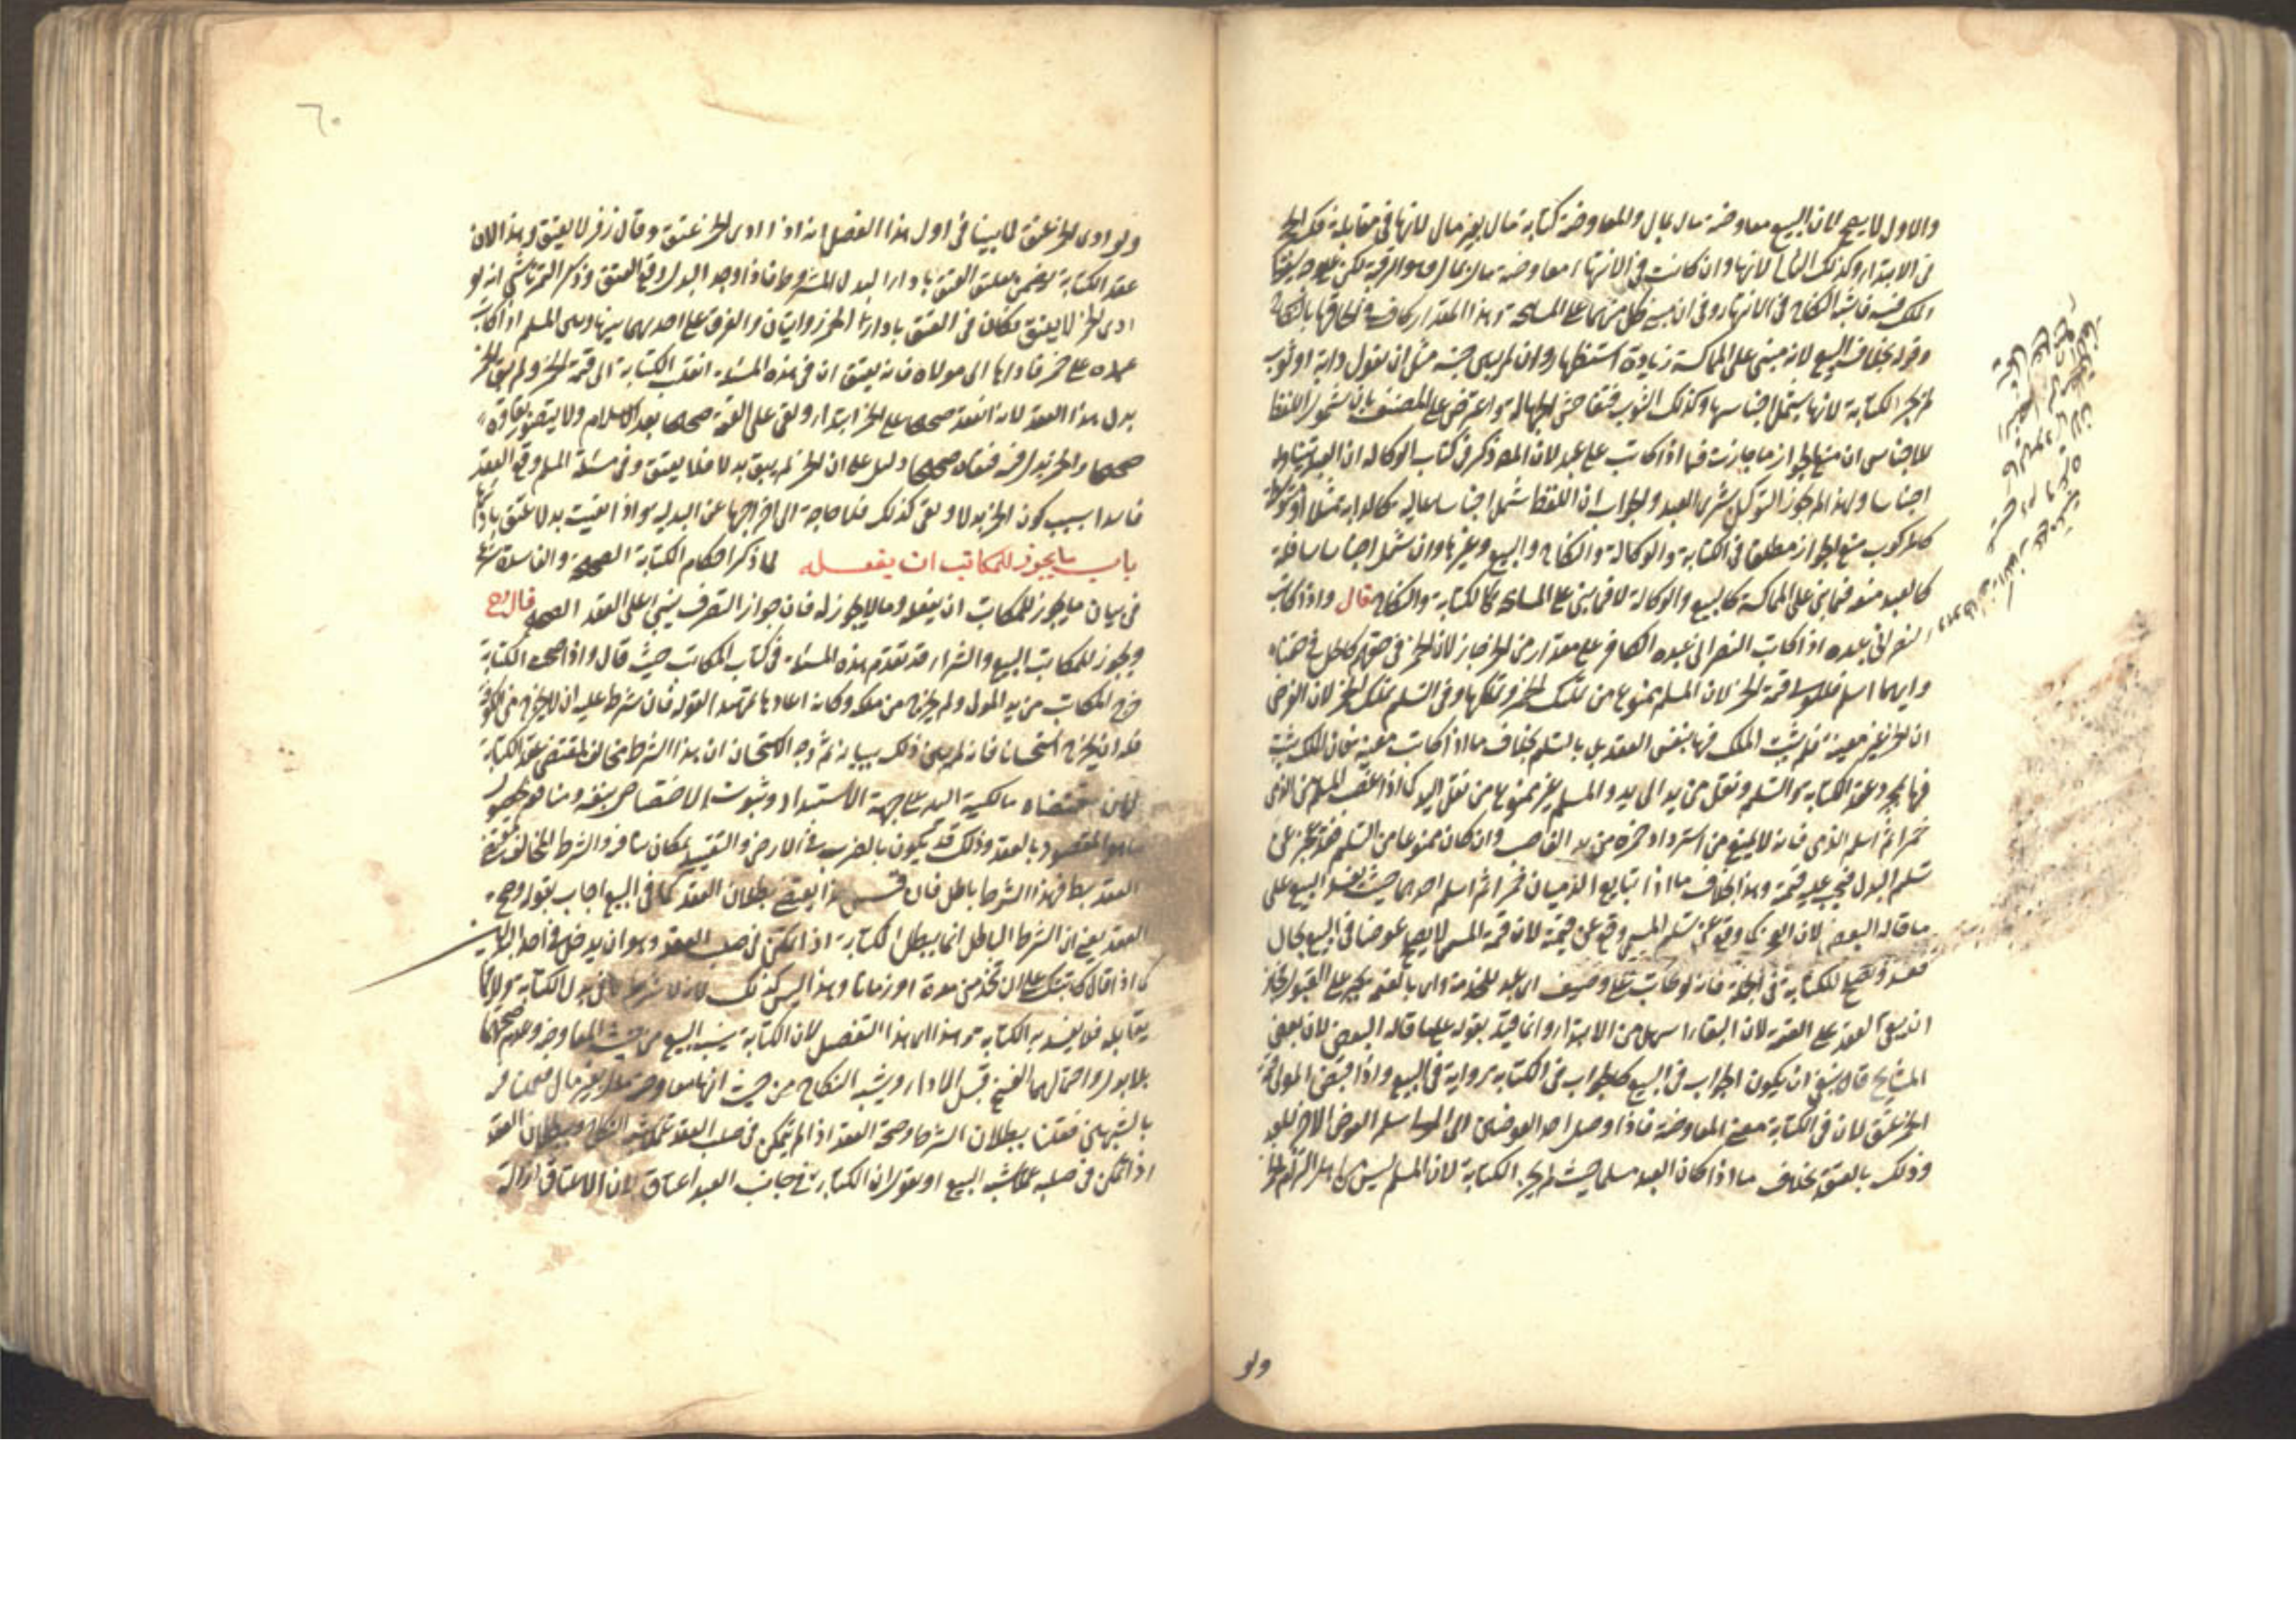 والاول لا يصح لان البيع معاوضة مال بمال والمعاوضة كتابة مال بغير مال لانها في مقابلة فك الحجر
في الابتداء وكذلك الثاني لانها وان كانت في الانتهاء معاوضة مال بمال وهو الرقبة لكن على وجه يسقط
الملك فيه فاشبه النكاح في الانتهاء وفي ان مبنى كل منهما على المسامحة وهذا المقدار كاف في الحاقها بالنكاح
وقوله بخلاف البيع لانه مبني على المماكسة زيادة استظهار وان لم يبين جنسه مثل ان يقول دابة او ثوب
لم تجز الكتابة لانها يشتمل اجناسها وكذلك الثوب فتفاحش الجهالة واعترض على المصنف بان شمول اللفظ
للاجناس ان منع الجواز ما جازت فيما اذا كاتب على عبد لان المص ذكر في كتاب الوكالة ان العبد يتناول
اجناسا ولهذا لم يجوز التوكيل بشرى العبد والجواب ان اللفظ ان شمل اجناسا عالية كالدابة مثلا او متوسطة
كالمركوب منع الجواز مطلقا في الكتابة والوكالة والنكاح والبيع وغيرها وان شمل اجناسا سافلة
كالعبد منعه فيما بني على المماكسة كالبيع والوكالة لا فيما بني على المسامحة كالكتابة والنكاح قال واذا كاتب
النصراني عبده اذا كاتب النصراني عبده الكافر على مقدار من الخمر جاز لان الخمر في حقهم كالخل في حقنا
وايهما اسلم فللمولى قيمة الخمر لان المسلم ممنوع من تمليك الخمر وتملكها وفي التسليم تمليك الخمر لان الفرض
ان الخمر غير معينة فلم يثبت الملك فيها بنفس العقد بل بالتسليم بخلاف ما اذا كانت معينة فان الملك يثبت
فيها بمجرد عقد الكتابة والتسليم ونقل من يد الى يد والمسلم غير ممنوع من نقل اليد كما اذا غصب المسلم من الذمي
خمرا ثم اسلم الذمي فانه لا يمنع من استرداد خمره من يد الغاصب وان كان ممنوعا من التسليم فقد عجز عن
تسليم البدل فيجب عليه قيمته وهذا بخلاف ما اذا تبايع الذميان خمرا ثم اسلم احدهما حيث يفسد البيع على
ما قاله البعض لان العجز كما وقع عن تسليم المسمى وقع عن قيمته لان قيمة المسمى لا يصلح عوضا في البيع بحال
فعقد وتصلح للكتابة في الجملة فانه لو كاتب على وصيف اي عبد للخدمة واتى بالقيمة يجبر على القبول فجاز
ان يبقى العقد على القيمة لان البقاء اسهل من الابتداء وانما قيد بقوله على ما قاله البعض لان بعض
المشايخ قال ينبغي ان يكون الجواب في البيع كالجواب في الكتابة رواية في البيع واذا قبض المولى
الخمر عتق لان في الكتابة معنى المعاوضة فاذا وصل احد العوضين الى المولى سلم العوض الاخر للعبد
وذلك بالعتق بخلاف ما اذا كان العبد مسلما حيث لم تجز الكتابة لان المسلم ليس من اهل التزام الخمر
ولو
٦٠
ولو ادى الخمر عتق لما بينا في اول هذا الفصل انه اذا ادى الخمر عتق وقال زفر لا يعتق وهذا لان
عقد الكتابة يتضمن تعليق العتق باداء البدل المشروط فاذا وجد البدل وقع العتق وذكر التمرتاشي انه لو
ادى الخمر لا يعتق فكان في العتق باداء الخمر روايتان والفرق على احدهما بينها وبين المسلم اذا كاتب
عبده على خمر فاداها الى مولاه فانه يعتق ان في هذه المسئلة انتقلت الكتابة الى قيمة الخمر ولم يبق الخمر
بدل هذا العقد لانه انعقد صحيحا على الخمر ابتداء وبقي على القيمة صحيحا بعد الاسلام ولا يتصور بقاؤه
صحيحا والخمر بدل فيه فبقاؤه صحيحا دليل على ان الخمر لم يبق بدلا فلا يعتق وفي مسئلة المسلم وقع العقد
فاسدا بسبب كون الخمر بدلا وبقي كذلك فلا حاجة الى اخراجها عن البدلية واذا بقيت بدلا عتق بادائها
باب ما يجوز للمكاتب ان يفعله لما ذكر احكام الكتابة الصحيحة والفاسدة شرع
في بيان ما يجوز للمكاتب ان يفعله وما لا يجوز له فان جواز التصرف يبتنى على العقد الصحيح قال رح
ويجوز للمكاتب البيع والشراء قد تقدم هذه المسئلة في كتاب المكاتب حيث قال واذا صحت الكتابة
خرج المكاتب من يد المولى ولم يخرج من ملكه وكانه اعادها تمهيدا لقوله فان شرط عليه ان لا يخرج من الكوفة
فله ان يخرج استحسانا فانه لم يبين ذلك ببيانه ثم وجه الاستحسان ان هذا الشرط مخالف لمقتضى عقد الكتابة
لان مقتضاه مالكية اليد على جهة الاستبداد وثبوت الاختصاص بنفسه ومنافعه لحصول
ما هو المقصود بالعقد وذلك قد يكون بالضرب في الارض والتقييد بمكان ينافيه والشرط المخالف لمقتضى
العقد باطل فهذا الشرط باطل فان قيل هذا يقتضي بطلان العقد كما في البيع اجاب بقوله وصح
العقد يعني ان الشرط الباطل انما يبطل الكتابة اذا تمكن في صلب العقد وهو ان يدخل في احد البدلين
كما اذا قال كاتبتك على ان تخدمني مدة او زمانا وهذا ليس كذلك لانه لا شرط في بدل الكتابة ولا فيما
يقابله فلا يفسد به الكتابة وهذا اي هذا التفصيل لان الكتابة يشبه البيع من حيث المعاوضة وعدم صحتها
بلا بدل واحتمالهما الفسخ قبل الاداء ويشبه النكاح من حيث انها معاوضة مال بغير مال فعملنا
بالشبهين فقلنا ببطلان الشرط وصحة العقد اذا لم يتمكن في صلب العقد عملا بشبه النكاح وببطلان العقد
اذا تمكن في صلبه عملا بشبه البيع او نقول ان الكتابة في جانب العبد اعتاق لان الاعتاق ازالة